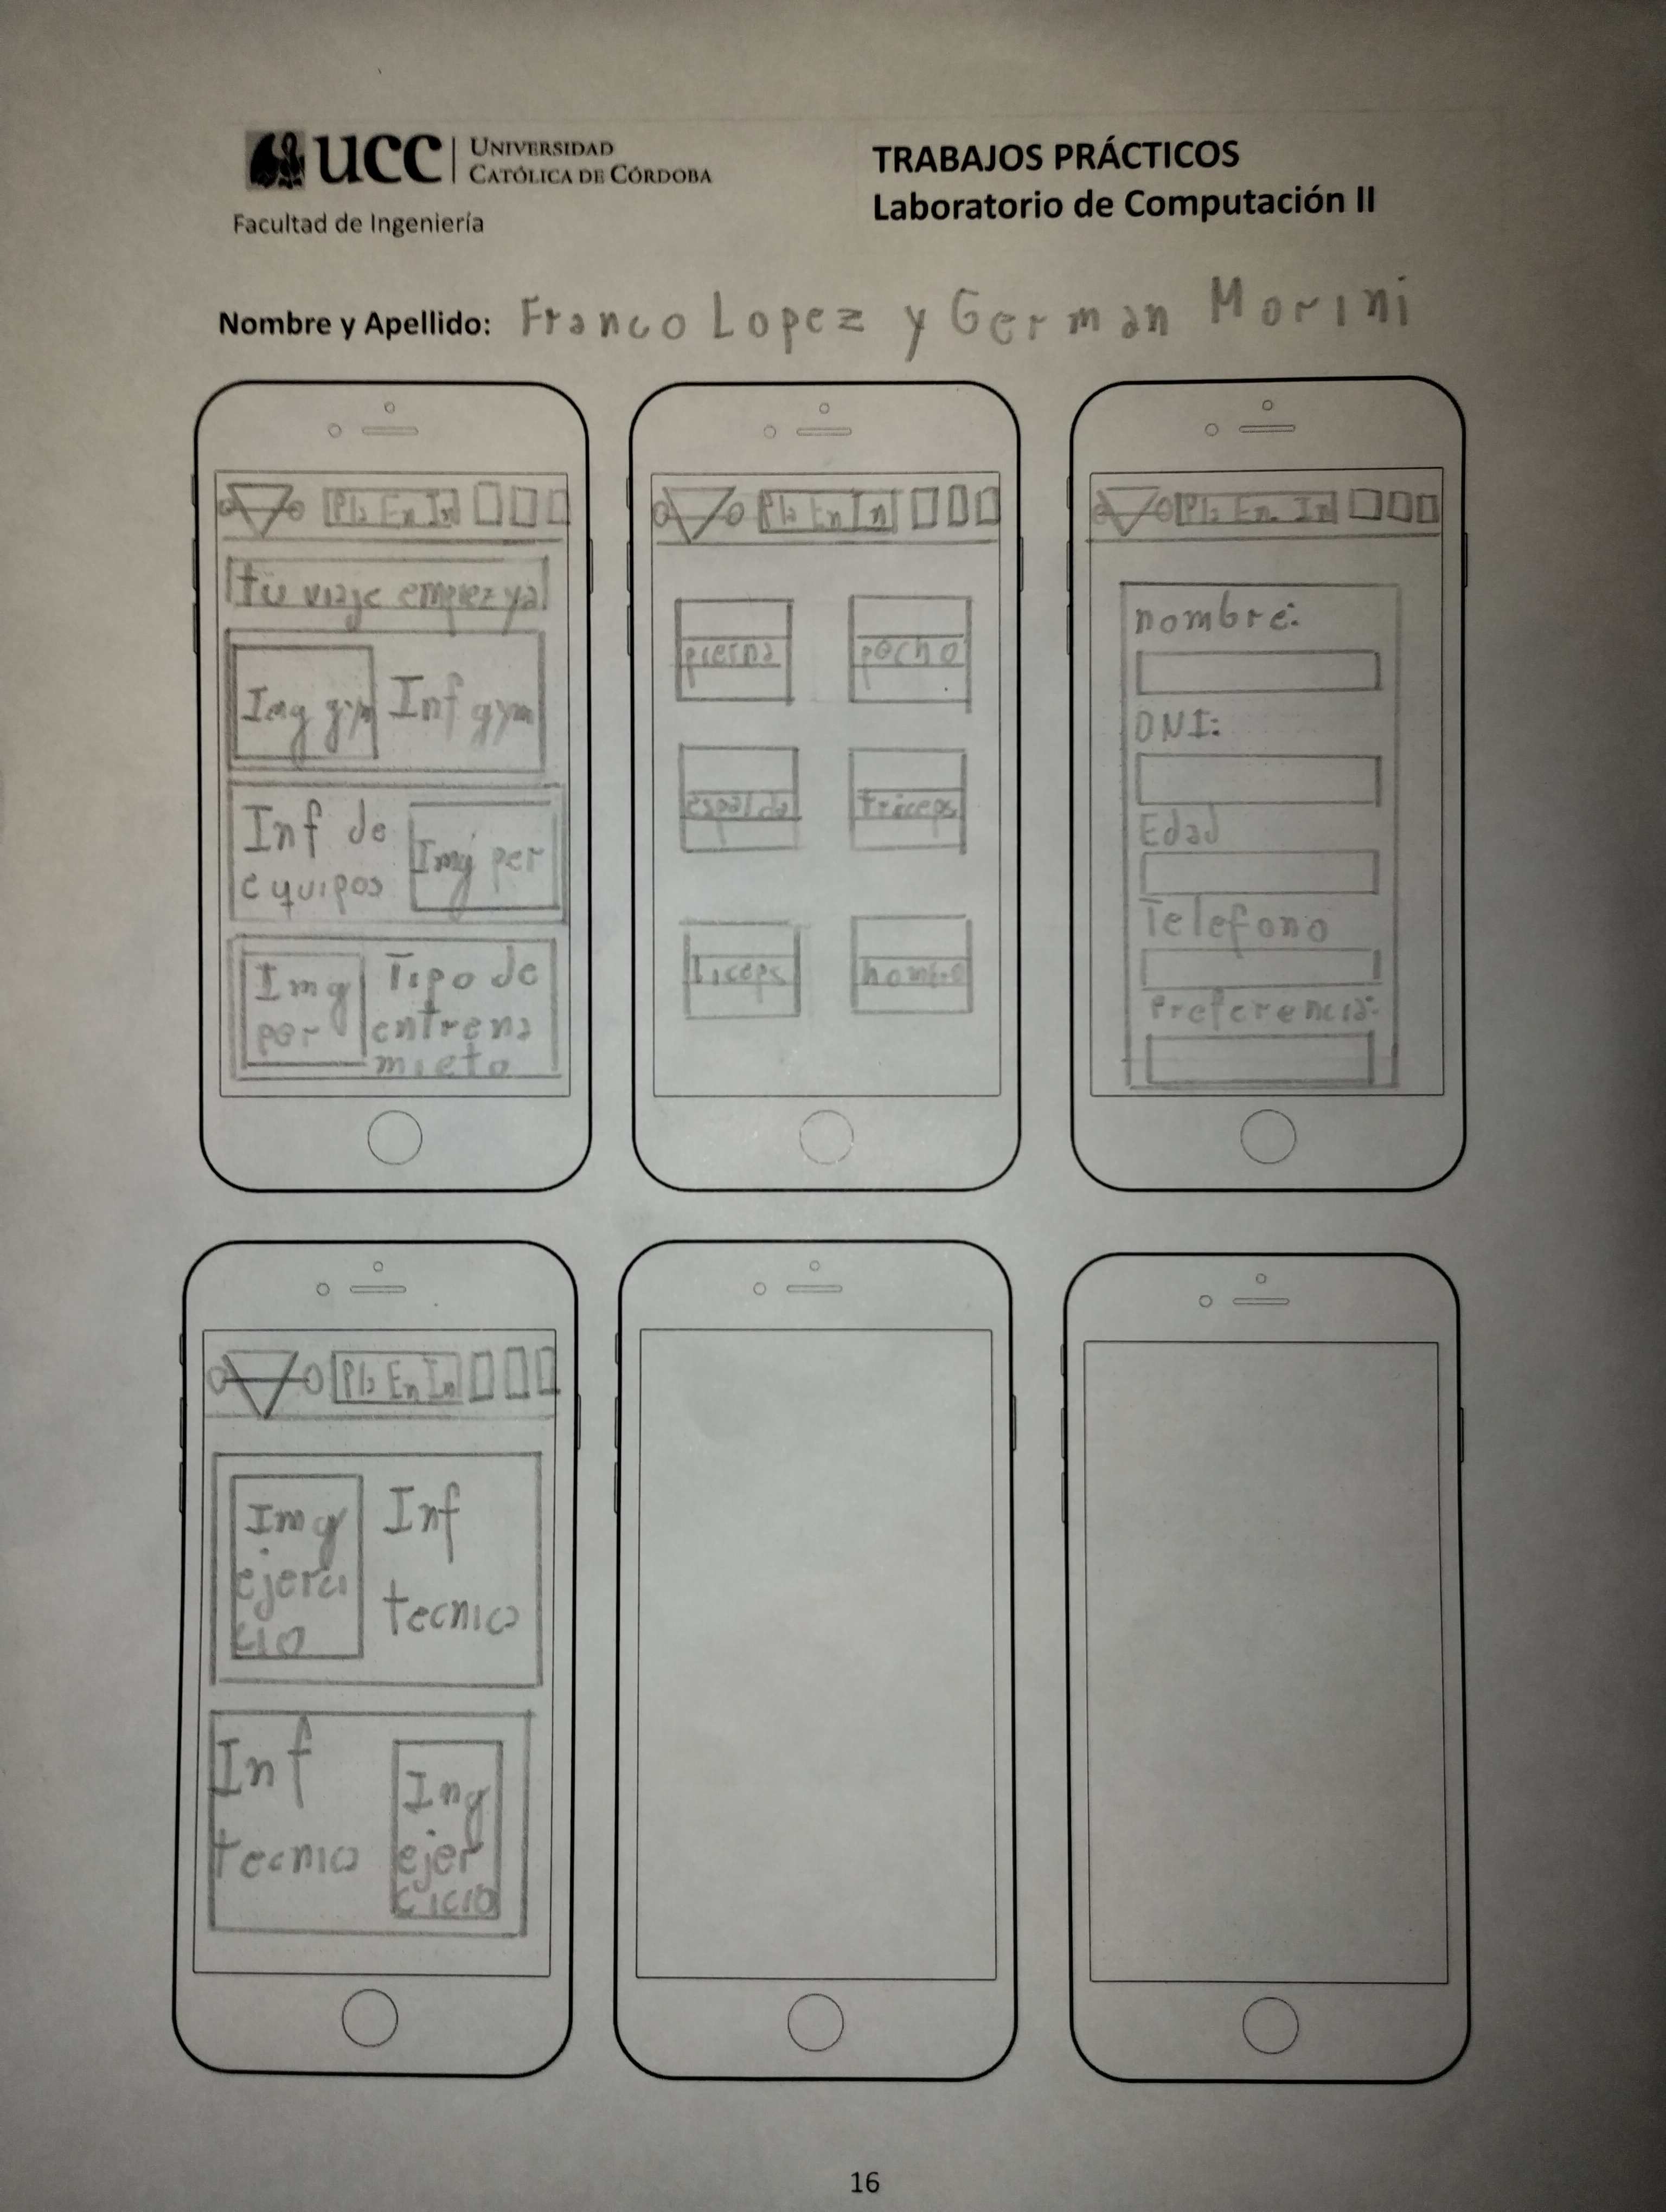 UCC UNIVERSIDAD
CATÓLICA DE CÓRDOBA
Facultad de Ingeniería
TRABAJOS PRÁCTICOS
Laboratorio de Computación II
Nombre y Apellido: Franco Lopez y German Morini
Pla En In
tu viaje empiez ya
Img gym Inf gym
Inf de
equipos
Img per
Img
per
Tipo de
entrena
mieto
Pla En In
pierna pecho
espalda triceps
biceps hombro
Pla En. In
nombre:
DNI:
Edad
Telefono
Preferencia:
Pla En In
Img
ejerci
cio
Inf
tecnico
Inf
tecnico
Img
ejer
cicio
16